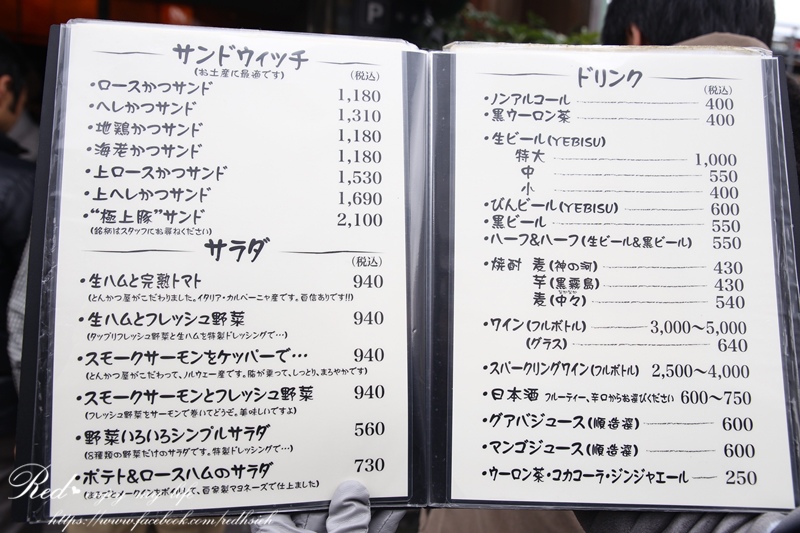 サンドウィッチ
(お土産に最適です)
(税込)
・ロースかつサンド 1,180
・ヘレかつサンド 1,310
・地鶏かつサンド 1,180
・海老かつサンド 1,180
・上ロースかつサンド 1,530
・上ヘレかつサンド 1,690
・“極上豚”サンド 2,100
(銘柄はスタッフにお尋ねください)
サラダ
(税込)
・生ハムと完熟トマト 940
(とんかつ屋がこだわりました。イタリア・カルベーニャ産です。自信ありです!!)
・生ハムとフレッシュ野菜 940
(タップリフレッシュ野菜と生ハムを特製ドレッシングで…)
・スモークサーモンをケッパーで… 940
(とんかつ屋がこだわって、ノルウェー産です。脂が乗って、しっとり、まろやかです)
・スモークサーモンとフレッシュ野菜 940
(フレッシュ野菜をサーモンで巻いてどうぞ。美味しいですよ)
・野菜いろいろシンプルサラダ 560
(8種類の野菜だけのサラダです。特製ドレッシングで…)
・ポテト&ロースハムのサラダ 730
自家製マヨネーズで仕上ました)
Red
https://www.facebook.com/redhsieh
P
ドリンク
(税込)
・ノンアルコール 400
・黒ウーロン茶 400
・生ビール(YEBISU)
特大 1,000
中 550
小 400
・びんビール(YEBISU) 600
・黒ビール 550
・ハーフ&ハーフ(生ビール&黒ビール) 550
・焼酎 麦(神の河) 430
芋(黒霧島) 430
なかなか
麦(中々) 540
・ワイン(フルボトル) 3,000〜5,000
(グラス) 640
・スパークリングワイン(フルボトル) 2,500〜4,000
・日本酒 フルーティー、辛口からお選びください 600〜750
・グァバジュース(順造選) 600
・マンゴジュース(順造選) 600
・ウーロン茶・コカコーラ・ジンジャエール 250